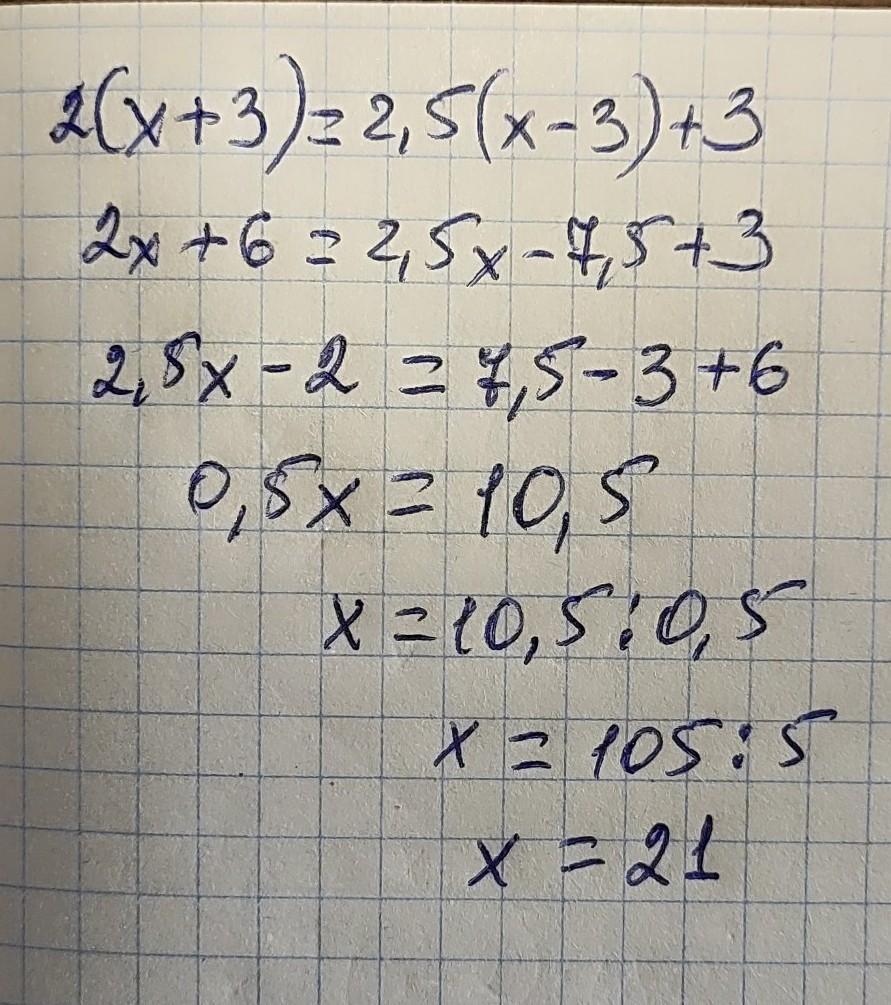 2(x+3)=2,5(x-3)+3
2x+6=2,5x-7,5+3
2,5x-2=7,5-3+6
0,5x=10,5
x=10,5:0,5
x=105:5
x=21